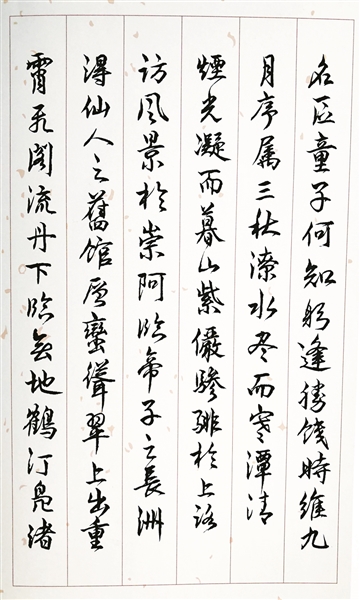 名区童子何知躬逢勝餞時維九
月序属三秋潦水尽而寒潭清
煙光凝而暮山紫儼驂騑於上路
訪風景於崇阿臨帝子之長洲
得仙人之舊館層蠻聳翠上出重
霄飛閣流丹下臨無地鶴汀凫渚